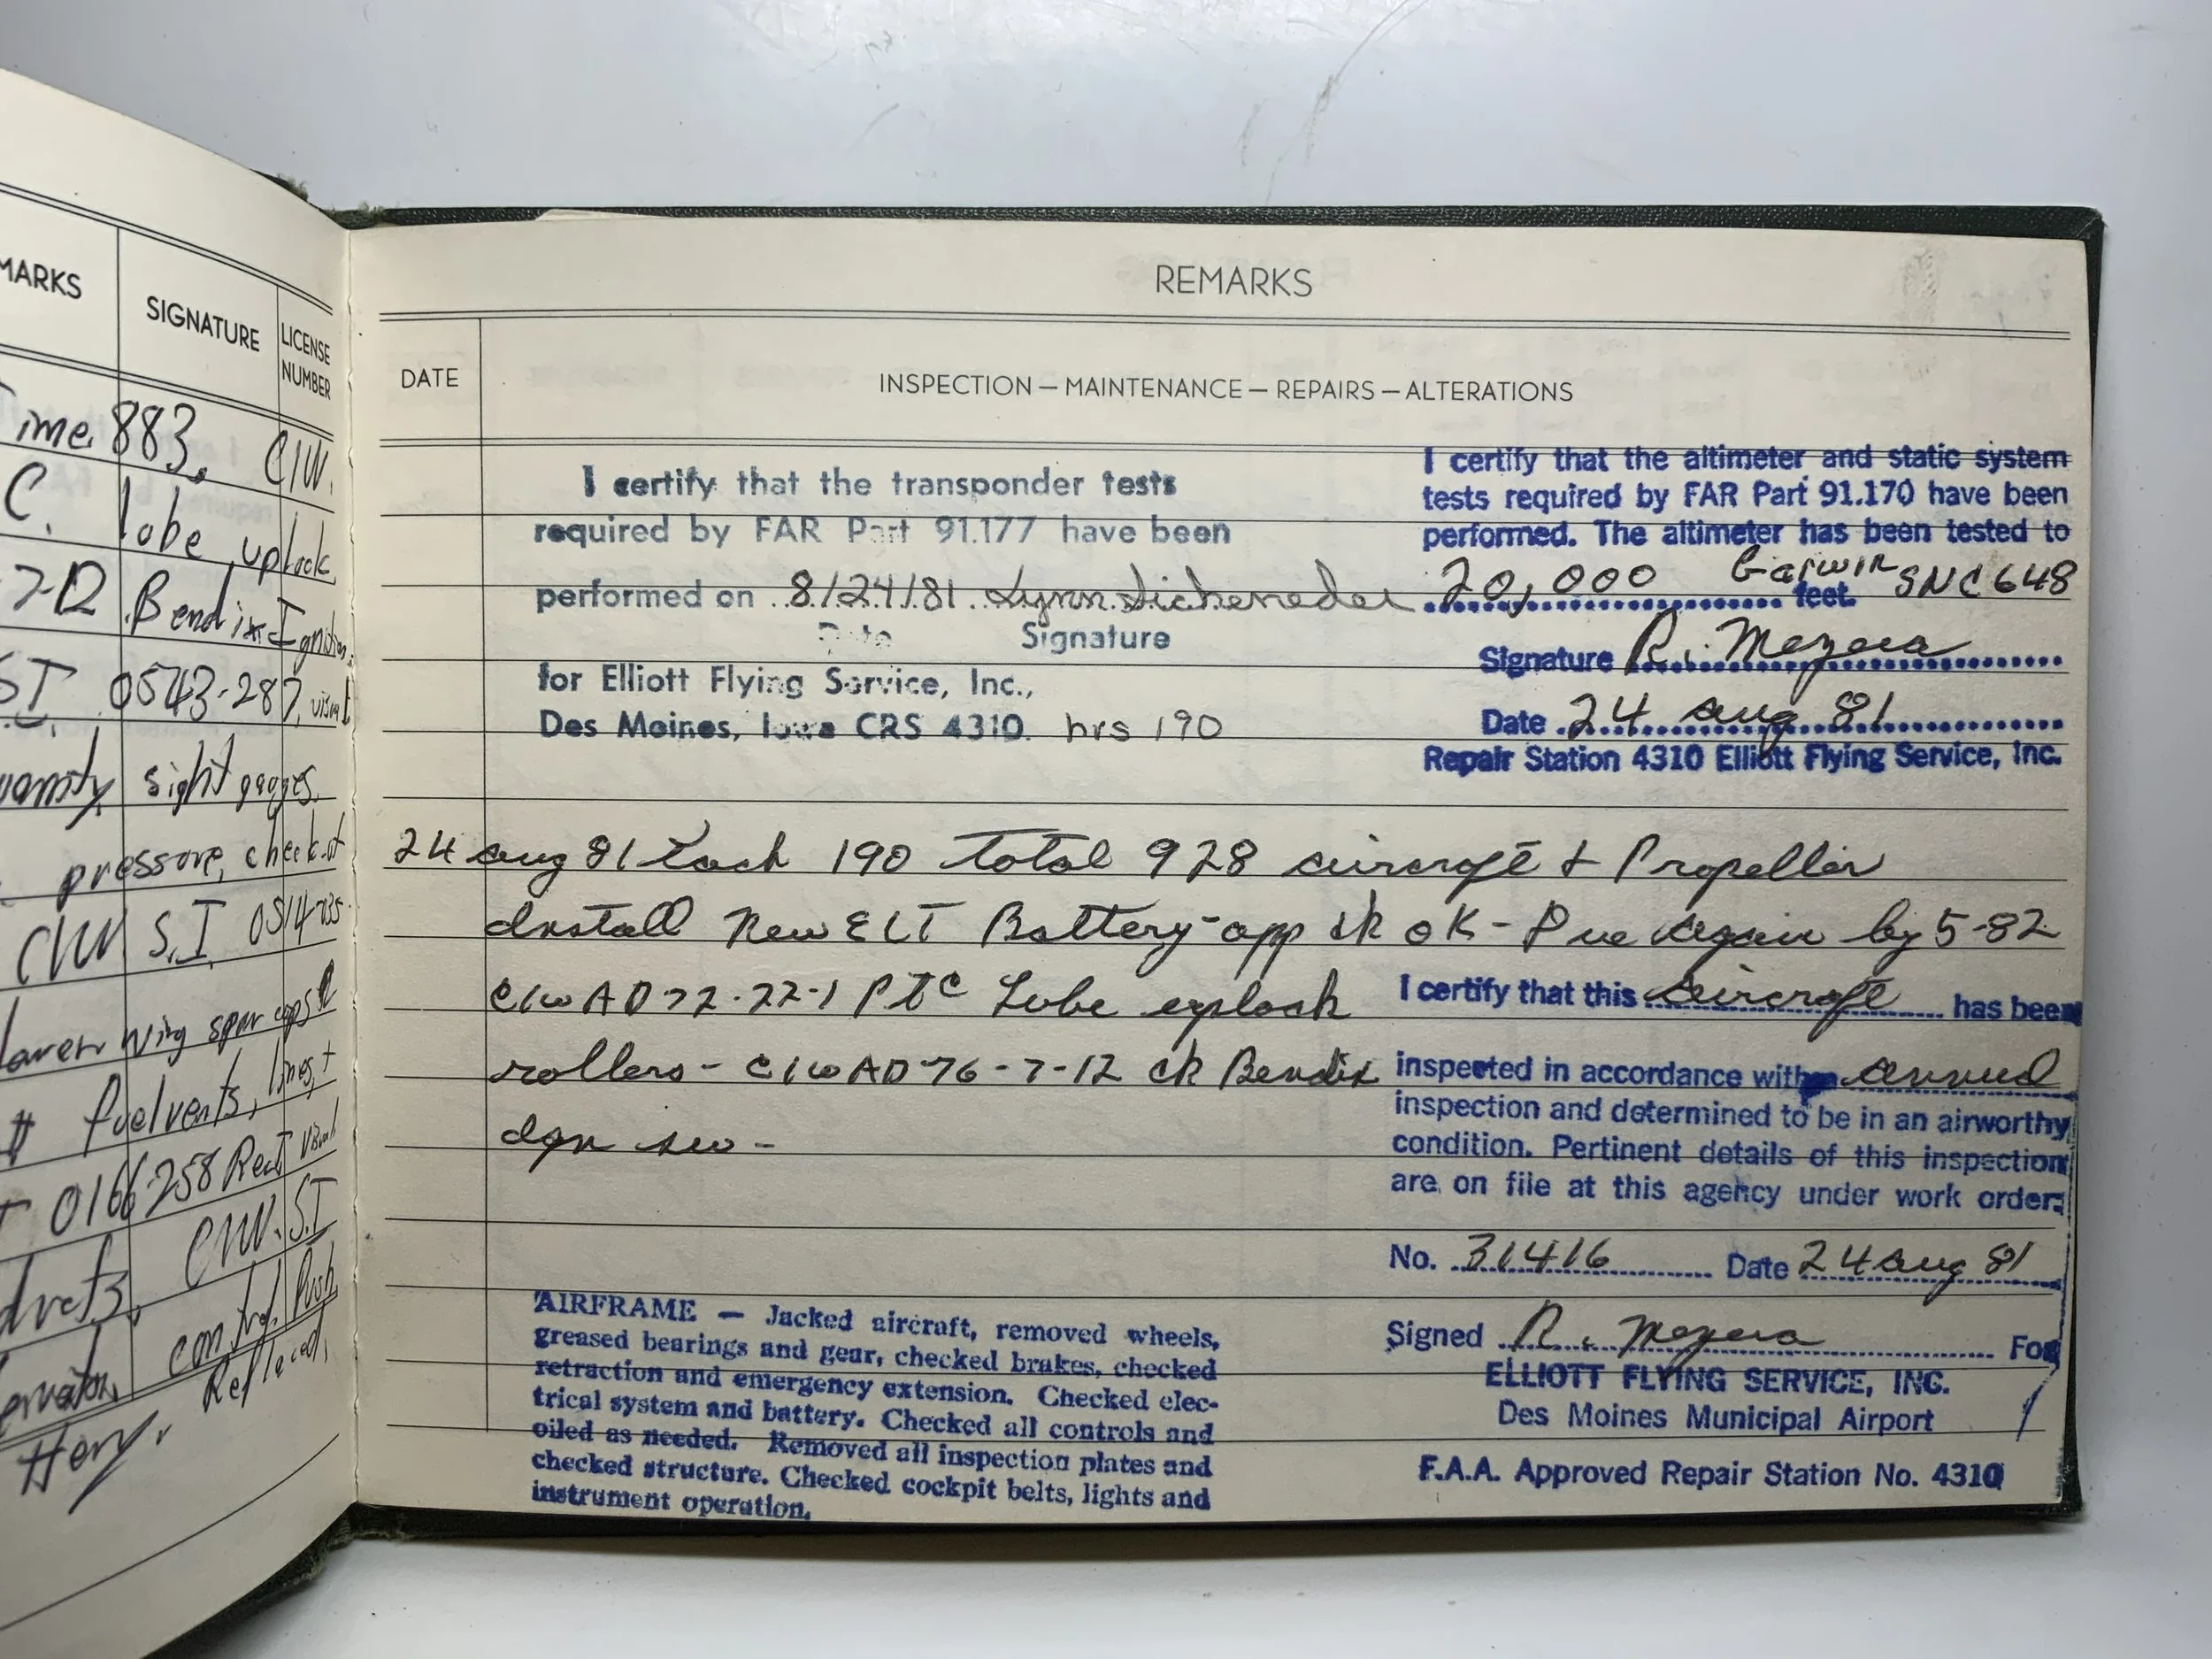 MARKS
SIGNATURE
LICENSE
NUMBER
Time 883. C/W.
C. lobe uplock
7-12 Bendix Ignition
S.I. 0543-287, visual
sight gages.
pressure, check
C/W S.I 0514735
wing spar caps
# fuel vents, lines, +
0166258
C/W. S.I
control Push
Henry.
REMARKS
DATE
INSPECTION — MAINTENANCE — REPAIRS — ALTERATIONS
I certify that the transponder tests
required by FAR Part 91.177 have been
performed on 8/24/81 Lynn
Date Signature
for Elliott Flying Service, Inc.,
Des Moines, Iowa CRS 4310. hrs 190
I certify that the altimeter and static system
tests required by FAR Part 91.170 have been
performed. The altimeter has been tested to
20,000 feet. Garwin SNC648
Signature R. Mezera
Date 24 Aug 81
Repair Station 4310 Elliott Flying Service, Inc.
24 Aug 81 Tach 190 Total 928 aircraft & Propeller
Install New ELT Battery - opp ck OK - Due again by 5-82
C/W AD 72-22-1 Pt C Lube uplock
rollers - C/W AD 76-7-12 ck Bendix
Ign sw -
I certify that this Aircraft has been
inspected in accordance with an annual
inspection and determined to be in an airworthy
condition. Pertinent details of this inspection
are on file at this agency under work order:
No. 31416 Date 24 Aug 81
Signed R. Mezera For
ELLIOTT FLYING SERVICE, INC.
Des Moines Municipal Airport
F.A.A. Approved Repair Station No. 4310
AIRFRAME — Jacked aircraft, removed wheels,
greased bearings and gear, checked brakes, checked
retraction and emergency extension. Checked elec-
trical system and battery. Checked all controls and
oiled as needed. Removed all inspection plates and
checked structure. Checked cockpit belts, lights and
instrument operation.